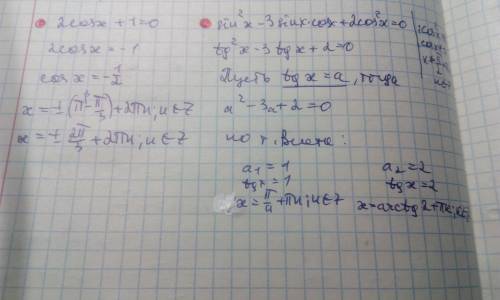 2cosx + 1 = 0
2cosx = -1
cosx = -1/2
x = ±(π - π/3) + 2πn; n∈Z
x = ± 2π/3 + 2πn; n∈Z
sin²x - 3sinx·cosx + 2cos²x = 0
tg²x - 3tgx + 2 = 0
Пусть tgx = a, тогда
a² - 3a + 2 = 0
по т. Виета:
a₁ = 1 a₂ = 2
tgx = 1 tgx = 2
x = π/4 + πn; n∈Z x = arctg2 + πn; n∈